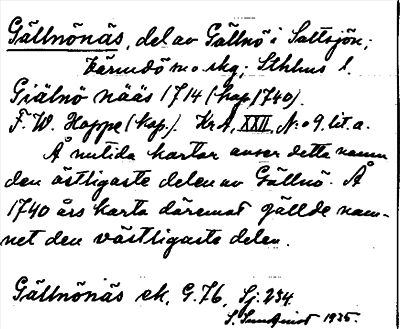 Gällnönäs, del av Gällnö i Saltsjön;
Värmdö sn o skg; Sthlms l.
Giälnö nääs 1714 (kop. 1740).
F. W. Hoppe (kop.). KrA, XXII, N:o 9 lit. a.
Å nutida kartor avser detta namn
den östligaste delen av Gällnö. Å
1740 års karta däremot gällde nam-
net den västligaste delen.
Gällnönäs ek. G. 76, Sj. 234.
S. 1935.